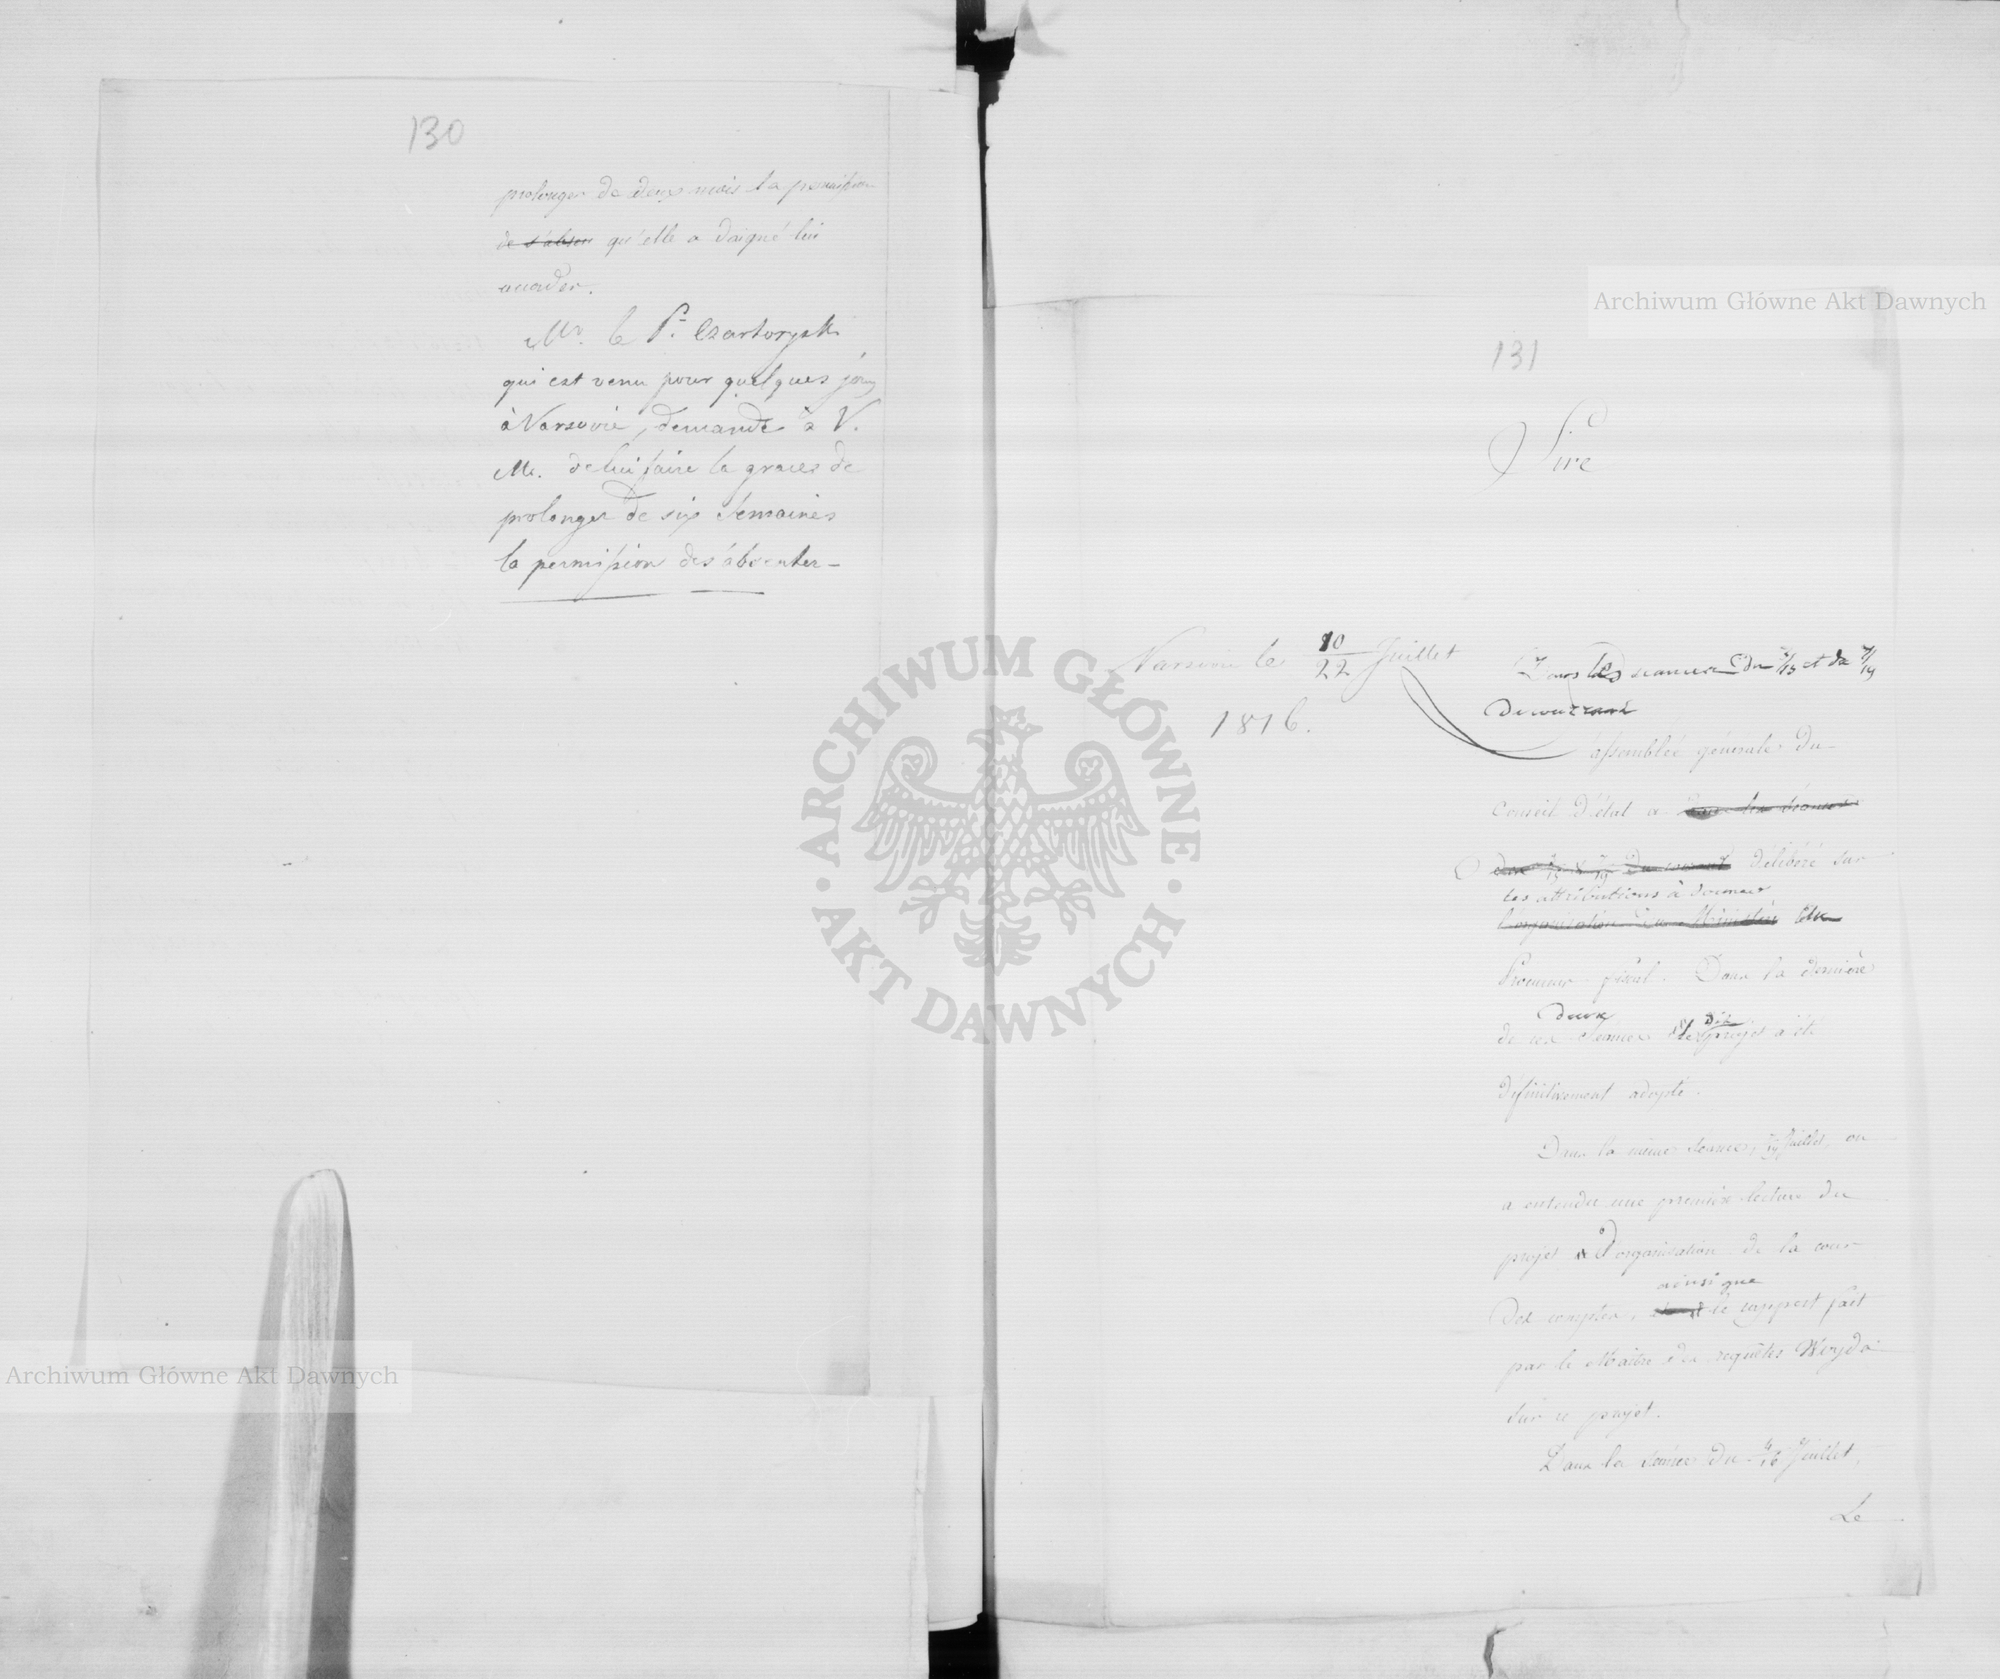 130
prolonger de deux mois la permission
de s'absen qu'elle a daigné lui
accorder.
Mr. le P. Czartoryski
qui est venu pour quelques jours
à Varsovie, demande à V.
M. de lui faire la graces de
prolonger de six semaines
la permission de s'absenter –
131
Sire
Varsovie le 10/22 Juillet
1816.
Dans les seances du 3/15 et du 7/19
du courrant
assemblée générale du
Conseil d'état a dans les séances
du courant délibéré sur
les attributions à donner
l'organisation du Ministère
Procureur fiscal. Dans la dernière
deux
de ces séances le dit projet a été
définitivement adopté.
Dans la même séance, 7/19 Juillet, on
a entendu une première lecture du
projet d'organisation de la cour
ainsi que
des comptes, le rapport fait
par le Maître des requêtes Woyda
sur ce projet.
Dans la séance du 4/16 Juillet,
Le
Archiwum Główne Akt Dawnych
Archiwum Główne Akt Dawnych
ARCHIWUM GŁÓWNE
AKT DAWNYCH